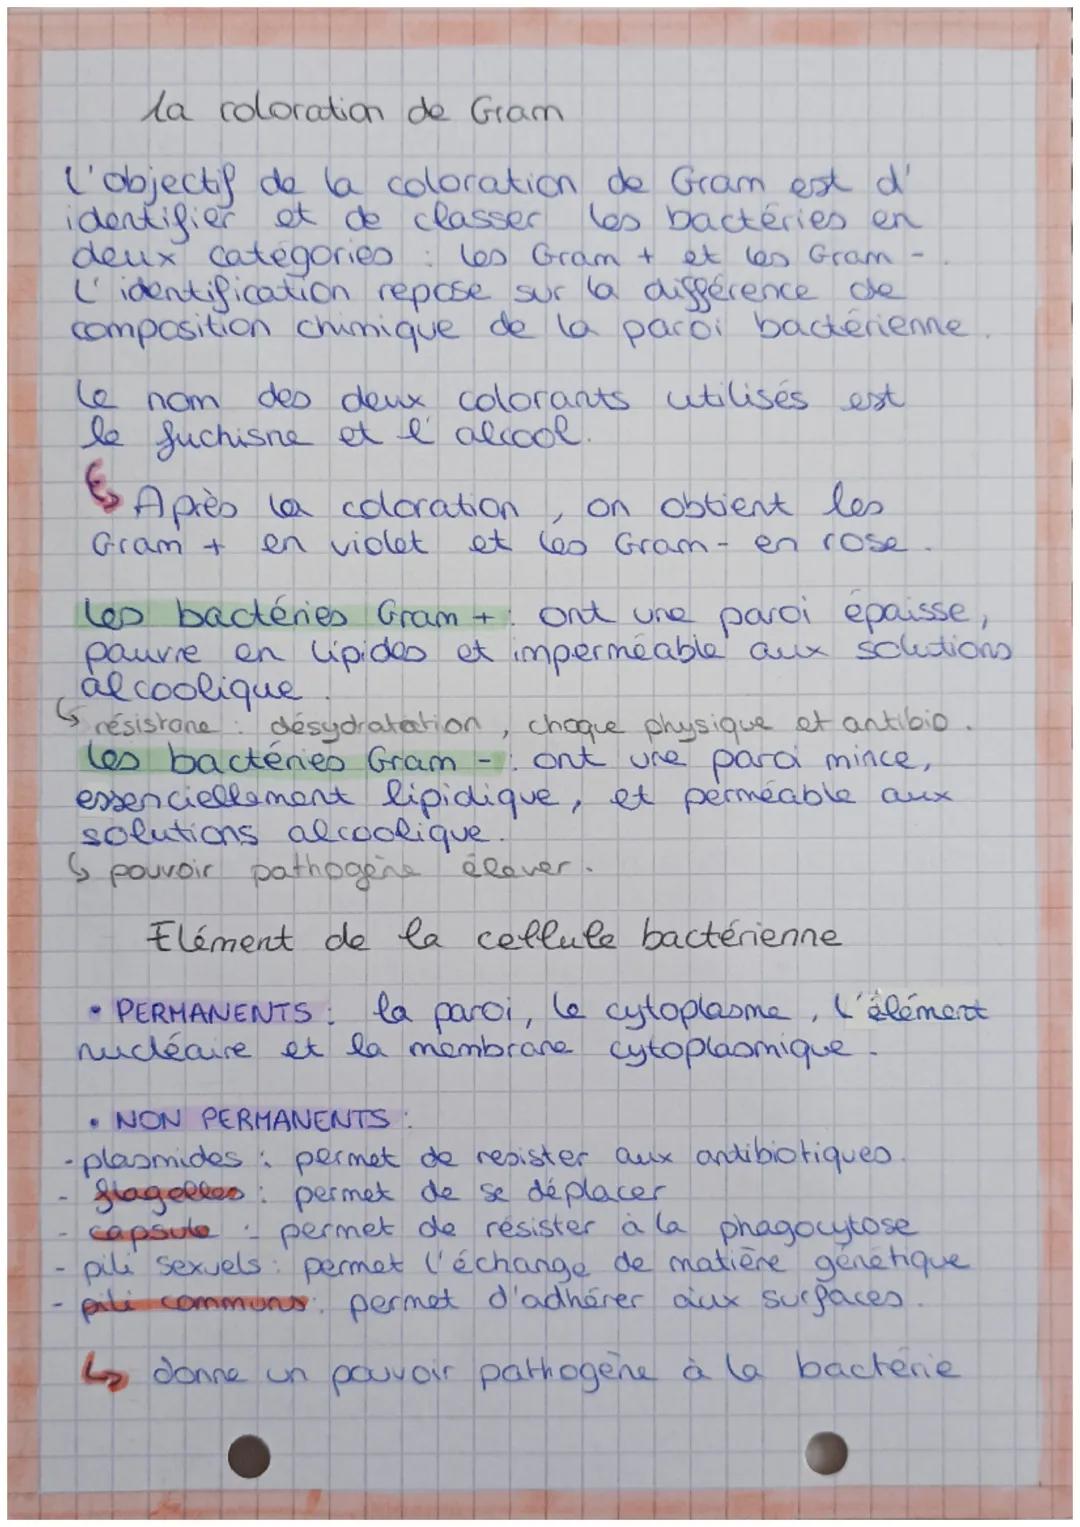 la coloration de Gram
L'objectif de la coloration de Gram est d'
identifier et de classer les bactéries en
deux catégories : les Gram + et les Gram -.
L'identification repose sur la différence de
composition chimique de la paroi bactérienne.
Le nom des deux colorants utilisés est
le fuchisne et l'alcool.
↳ Après la coloration, on obtient les
Gram + en violet et les Gram - en rose.
Les bactéries Gram + : ont une paroi épaisse,
pauvre en lipides et imperméable aux solutions
alcoolique.
↳ résistane : désydratation, choque physique et antibio.
Les bactéries Gram - : ont une paroi mince,
essenciellement lipidique, et perméable aux
solutions alcoolique.
↳ pouvoir pathogène élever.
Elément de la cellule bactérienne
• PERMANENTS : la paroi, le cytoplasme, l'élément
nucléaire et la membrane cytoplasmique.
• NON PERMANENTS :
- plasmides : permet de resister aux antibiotiques.
- flagelles : permet de se déplacer
- capsule : permet de résister à la phagocytose
- pili sexuels : permet l'échange de matière génétique
- pili communs : permet d'adhérer aux surfaces.
↳ donne un pouvoir pathogène à la bactérie